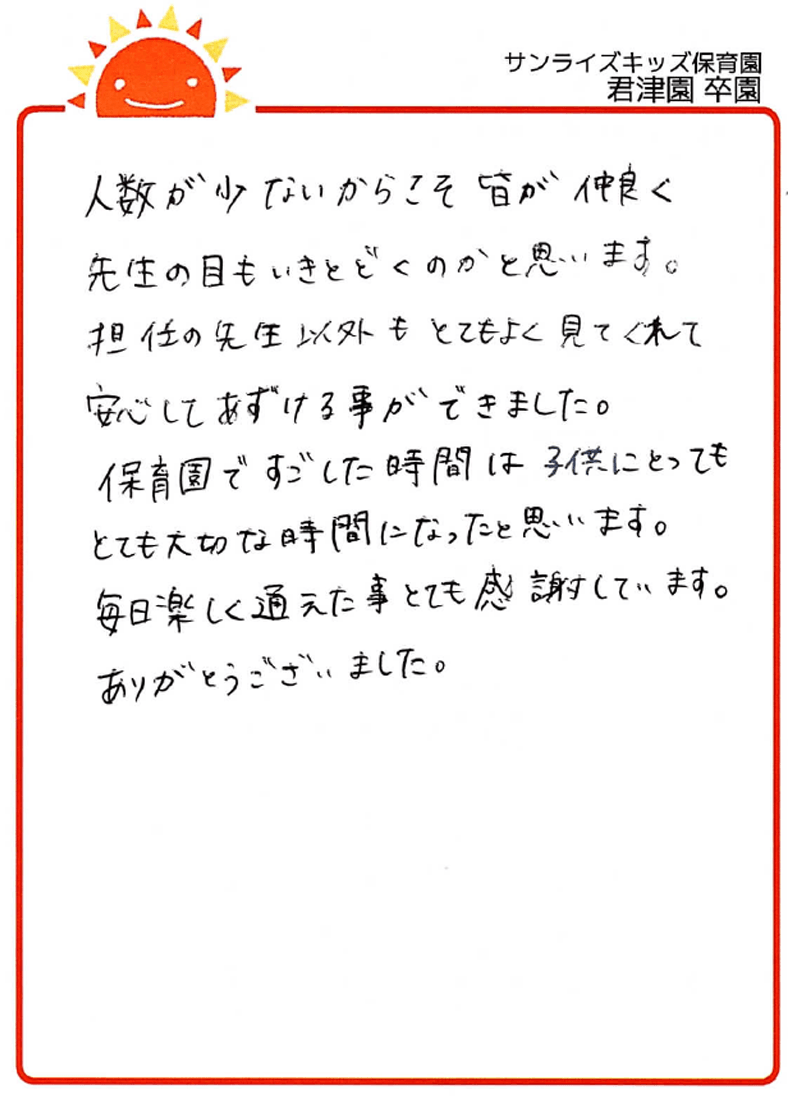 サンライズキッズ保育園
君津園 卒園
人数が少ないからこそ皆が仲良く
先生の目もいきとどくのかと思います。
担任の先生以外もとてもよく見てくれて
安心してあずける事ができました。
保育園ですごした時間は子供にとっても
とても大切な時間になったと思います。
毎日楽しく通えた事とても感謝しています。
ありがとうございました。